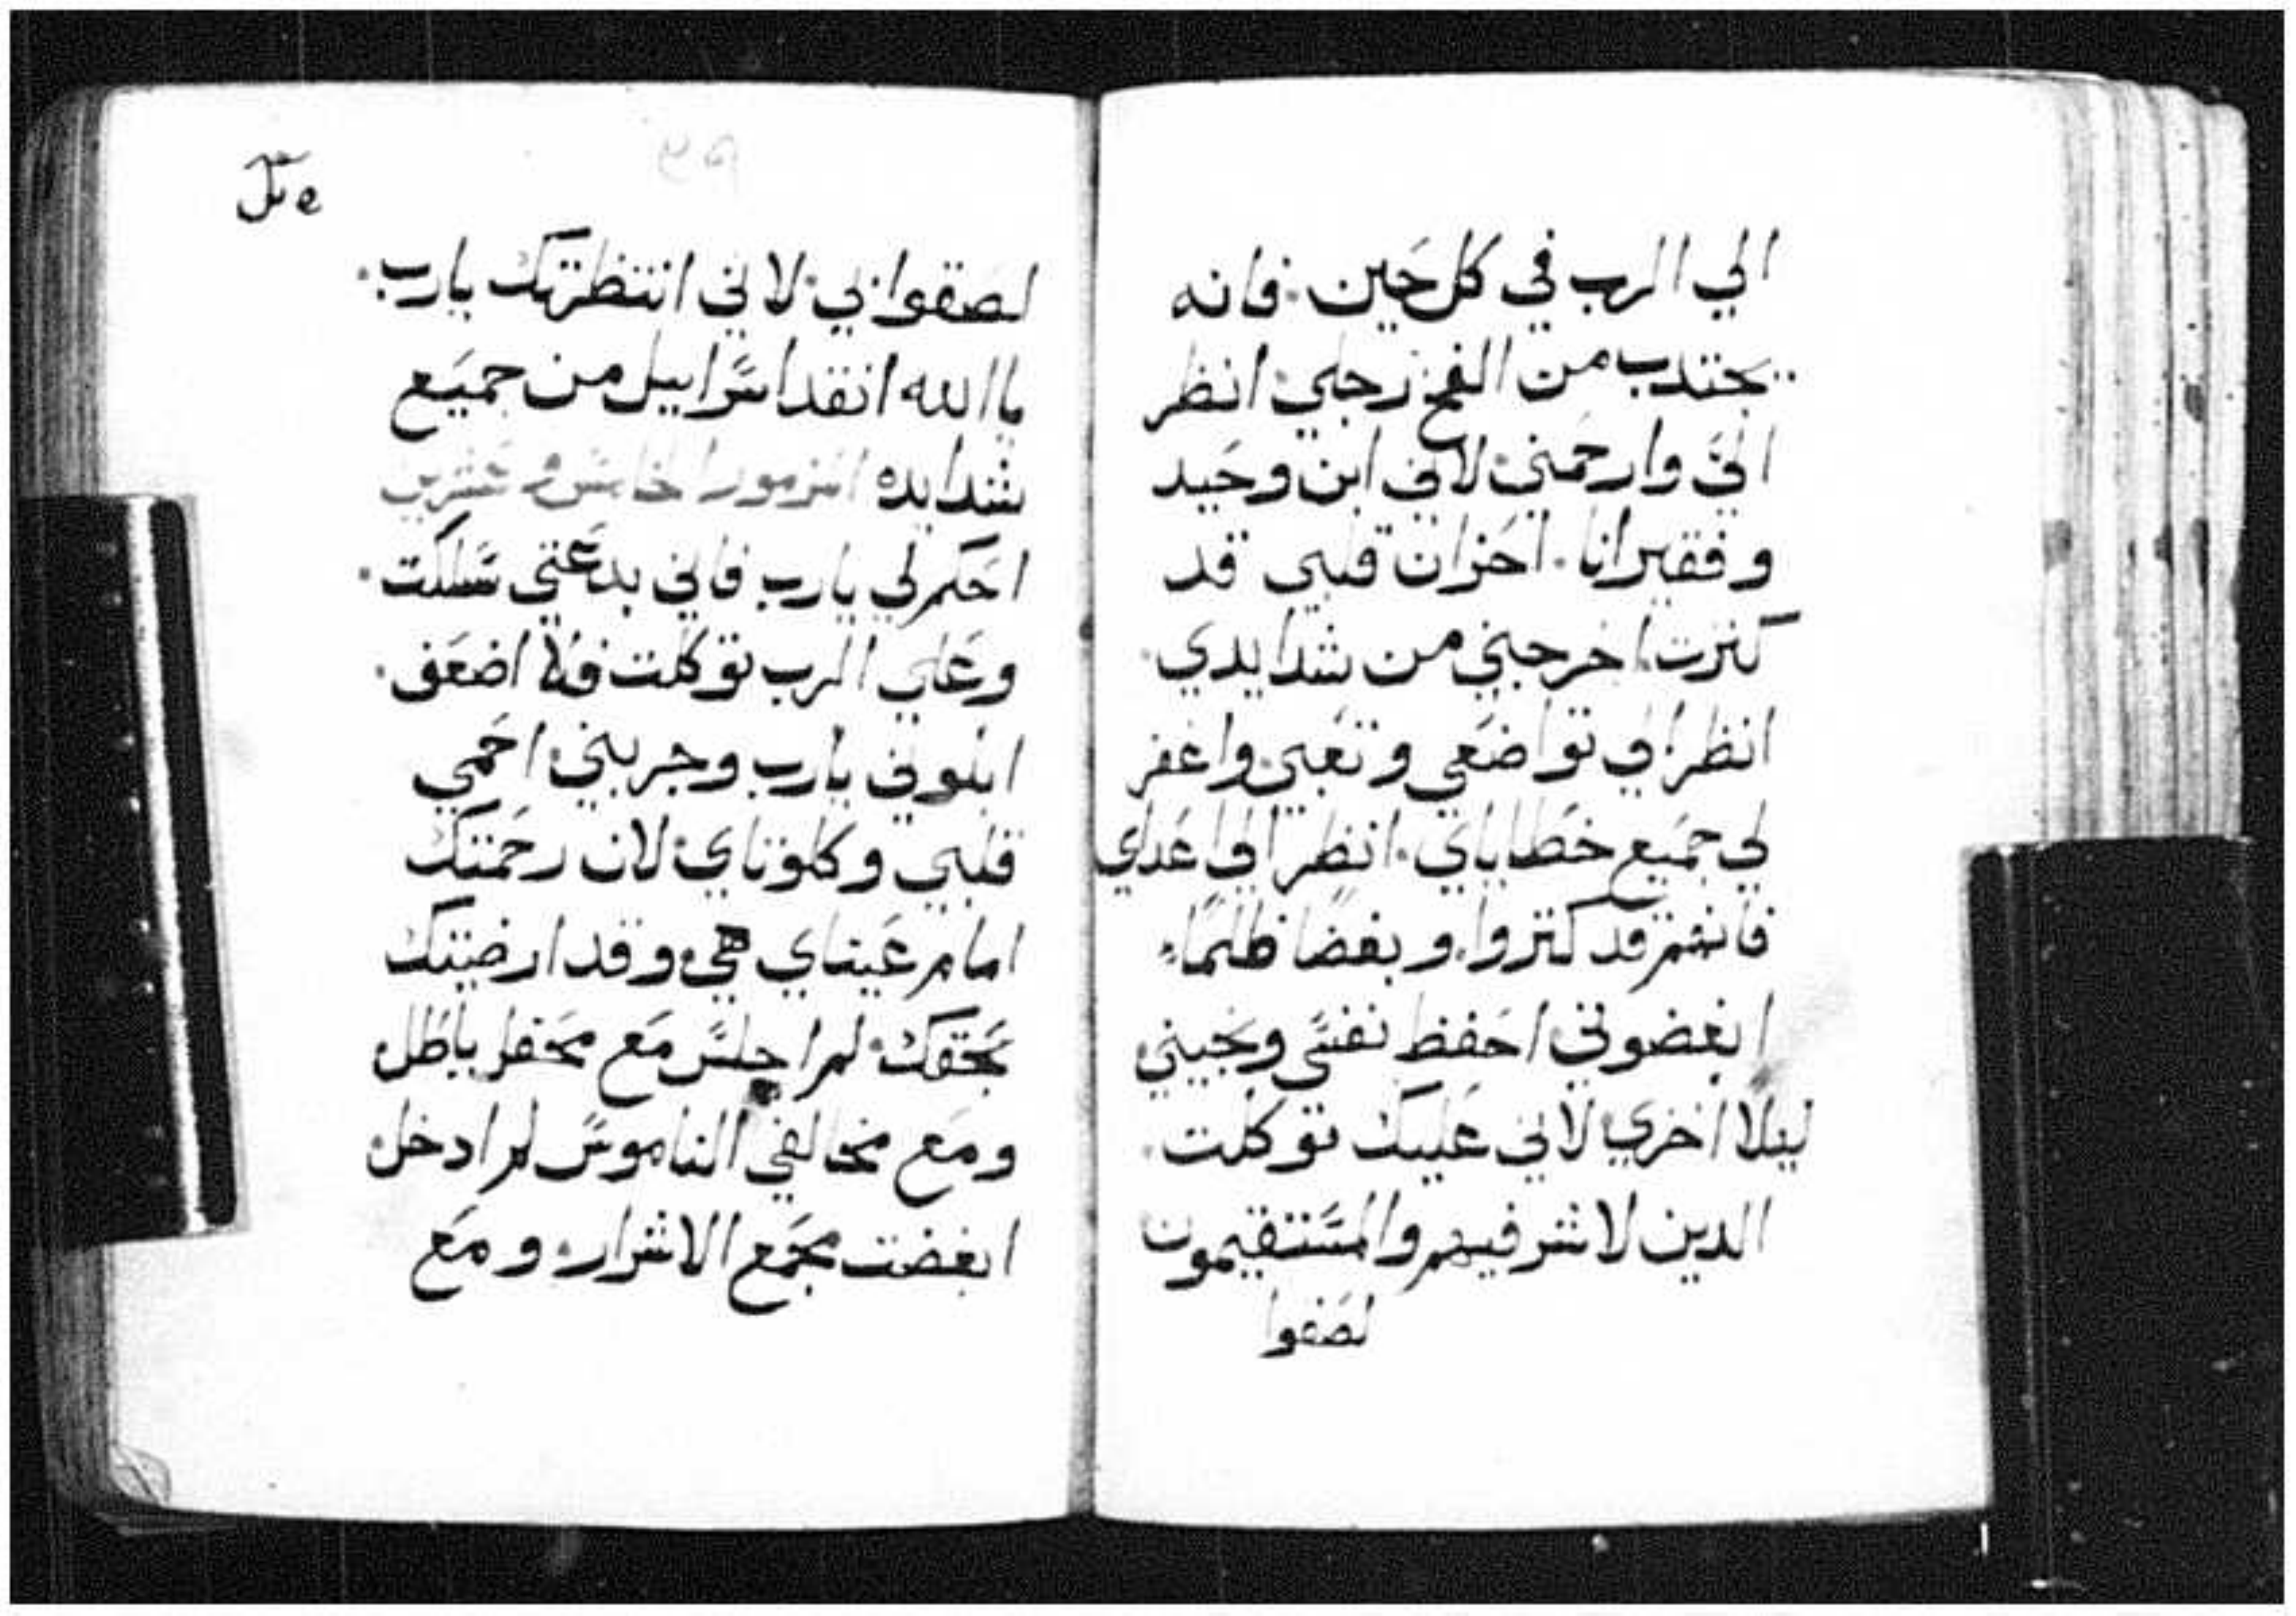 الي الرب في كل حين. فانه
يجتدب من الفخ رجلي انظر
الي وارحمني لاني ابن وحيد
وفقير انا. احزان قلبي قد
كثرت اخرجني من شدايدي.
انظر الي تواضعي وتعبي واغفر
لي جميع خطاياي. انظر الي اعداي
فانهم قد كثروا. وبغضا ظلما
ابغضوني احفظ نفسي ونجيني
ليلا اخزي لاني عليك توكلت.
الدين لا شر فيهم والمستقيمون
لصقوا
لصقوا بي لاني انتظرتك يارب.
ياالله انقد اسراييل من جميع
شدايده المزمور الخامس وعشرين
احكم لي يارب فاني بدعتي سلكت.
وعلي الرب توكلت فلا اضعف.
ابلوني يارب وجربني احمي
قلبي وكلوتاي لان رحمتك
امام عيناي هي وقد ارضيتك
بحقك لم اجلس مع محفل باطل
ومع مخالفي الناموس لم ادخل
ابغضت مجمع الاشرار ومع